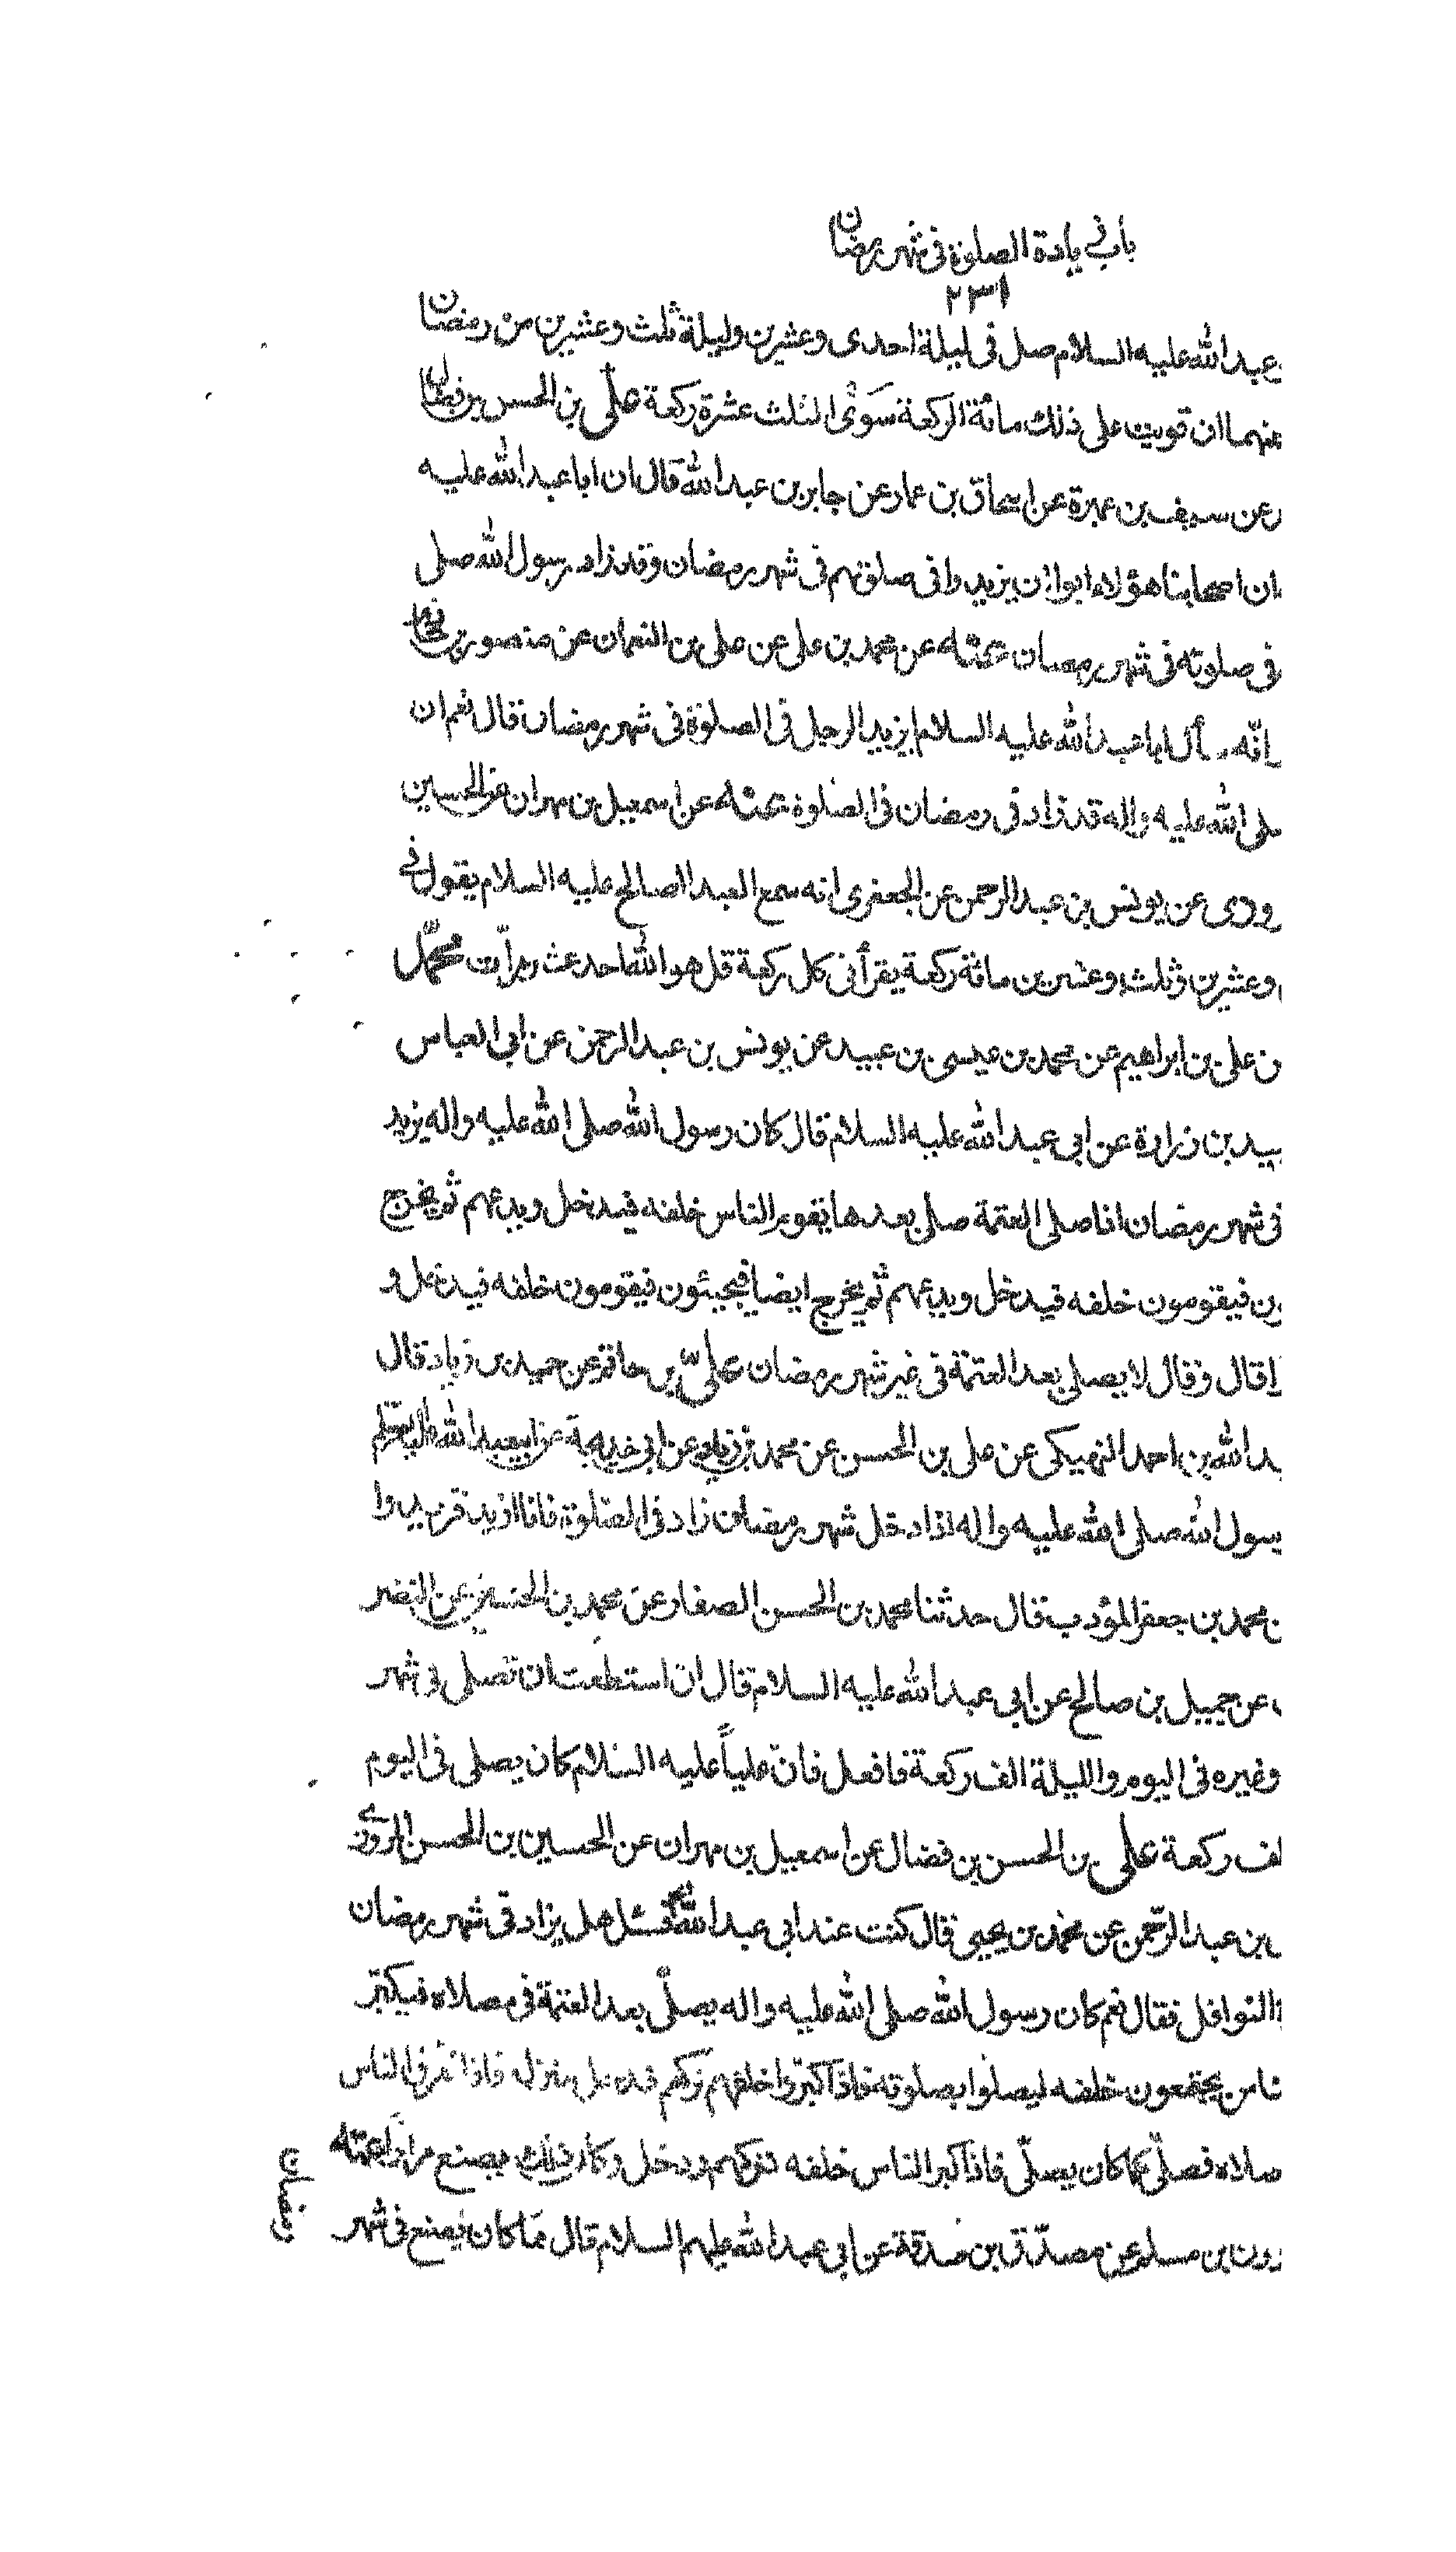 باب زيادة الصلوة فى شهر رمضان
٢٣١
عبد الله عليه السلام صل فى ليلة احدى وعشرين وليلة ثلث وعشرين من رمضان
منهما ان قويت على ذلك مائة الركعة سوى الثلث عشرة ركعة على بن الحسن بن فضال
عن سيف بن عميرة عن اسحاق بن عمار عن جابر بن عبد الله قال ان ابا عبد الله عليه
ان اصحابنا هؤلاء ابوا ان يزيدوا فى صلوتهم فى شهر رمضان وقد زاد رسول الله صلى
فى صلوته فى شهر رمضان عنه عن محمد بن على عن على بن النعمان عن منصور بن
انه سأل ابا عبد الله عليه السلام ايزيد الرجل فى الصلوة فى شهر رمضان قال نعم ان
صلى الله عليه واله قد زاد فى رمضان فى الصلوة عنه عن اسمعيل بن مهران عن الحسين
عن يونس بن عبد الرحمن عن الجعفرى انه سمع العبد الصالح عليه السلام يقول فى
وعشرين وثلث وعشرين مائة ركعة يقرأ فى كل ركعة قل هو الله احد عشر مرات محمد
عن على بن ابراهيم عن محمد بن عيسى بن عبيد عن يونس بن عبد الرحمن عن ابى العباس
بيد بن زرارة عن ابى عبد الله عليه السلام قال كان رسول الله صلى الله عليه واله يزيد
فى شهر رمضان اذا صلى العتمة صلى بعدها يقوم الناس خلفه فيدخل ويدعهم ثم يخرج
ون فيقومون خلفه فيدخل ويدعهم ثم يخرج ايضا فيجيئون فيقومون خلفه فيدخل و
قال وقال لا يصلى بعد العتمة فى غير شهر رمضان على بن حاتم عن حميد بن زياد قال
بد الله بن احمد النهيكى عن على بن الحسن عن محمد بن زياد عن ابى خديجة عن ابى عبد الله
رسول الله صلى الله عليه واله اذا دخل شهر رمضان زاد فى الصلوة فانا ازيد فزيدوا
محمد بن جعفر المؤدب قال حدثنا محمد بن الحسن الصفار عن محمد بن الحسين عن النضر
عن جميل بن صالح عن ابى عبد الله عليه السلام قال ان استطعت ان تصلى فى شهر
وغيره فى اليوم والليلة الف ركعة فافعل فان علياً عليه السلام كان يصلى فى اليوم
لف ركعة على بن الحسن بن فضال عن اسمعيل بن مهران عن الحسين بن الحسن المروزى
بن عبد الرحمن عن محمد بن يحيى قال كنت عند ابى عبد الله فسئل هل يزاد فى شهر رمضان
النوافل فقال نعم كان رسول الله صلى الله عليه واله يصلى بعد العتمة فى مصلاه فيكثر
الناس يجتمعون خلفه ليصلوا بصلوته فاذا كثروا خلفه تركهم ودخل منزله فاذا تفرق الناس
صلاه فصلى كما كان يصلى فاذا كثر الناس خلفه تركهم ودخل وكان ذلك يصنع مراراً عنه
رون بن مسلم عن مصدق بن صدقة عن ابى عبد الله عليهم السلام قال مما كان يصنع فى شهر